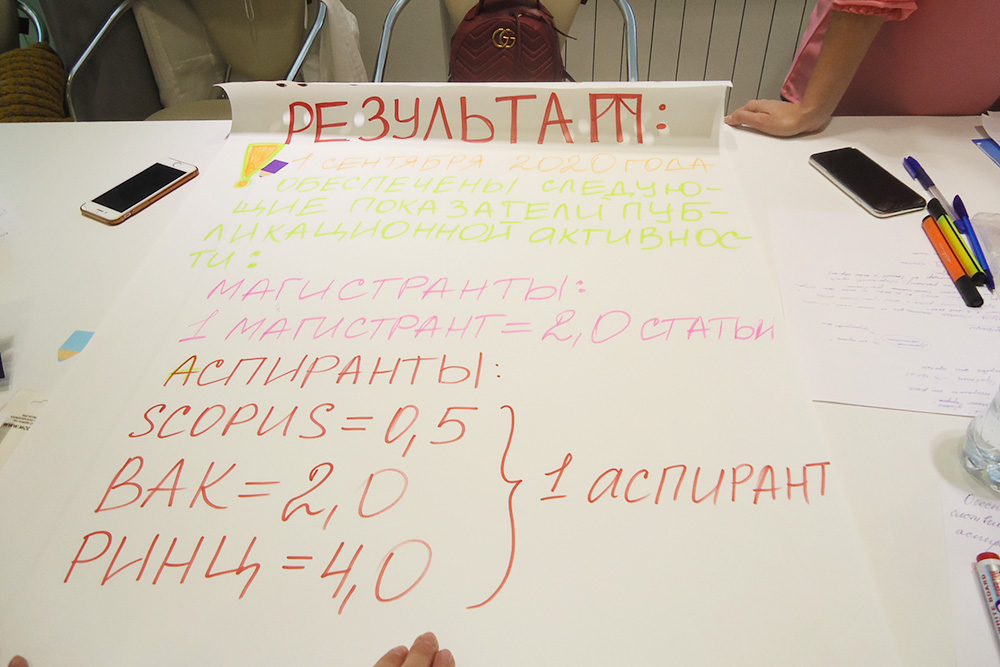 РЕЗУЛЬТАТ:
1 СЕНТЯБРЯ 2020 ГОДА
ОБЕСПЕЧЕНЫ СЛЕДУЮ-
ЩИЕ ПОКАЗАТЕЛИ ПУБ-
ЛИКАЦИОННОЙ АКТИВНОС-
ТИ:
МАГИСТРАНТЫ:
1 МАГИСТРАНТ = 2,0 СТАТЬИ
АСПИРАНТЫ:
SCOPUS = 0,5
ВАК = 2,0
РИНЦ = 4,0
1 АСПИРАНТ